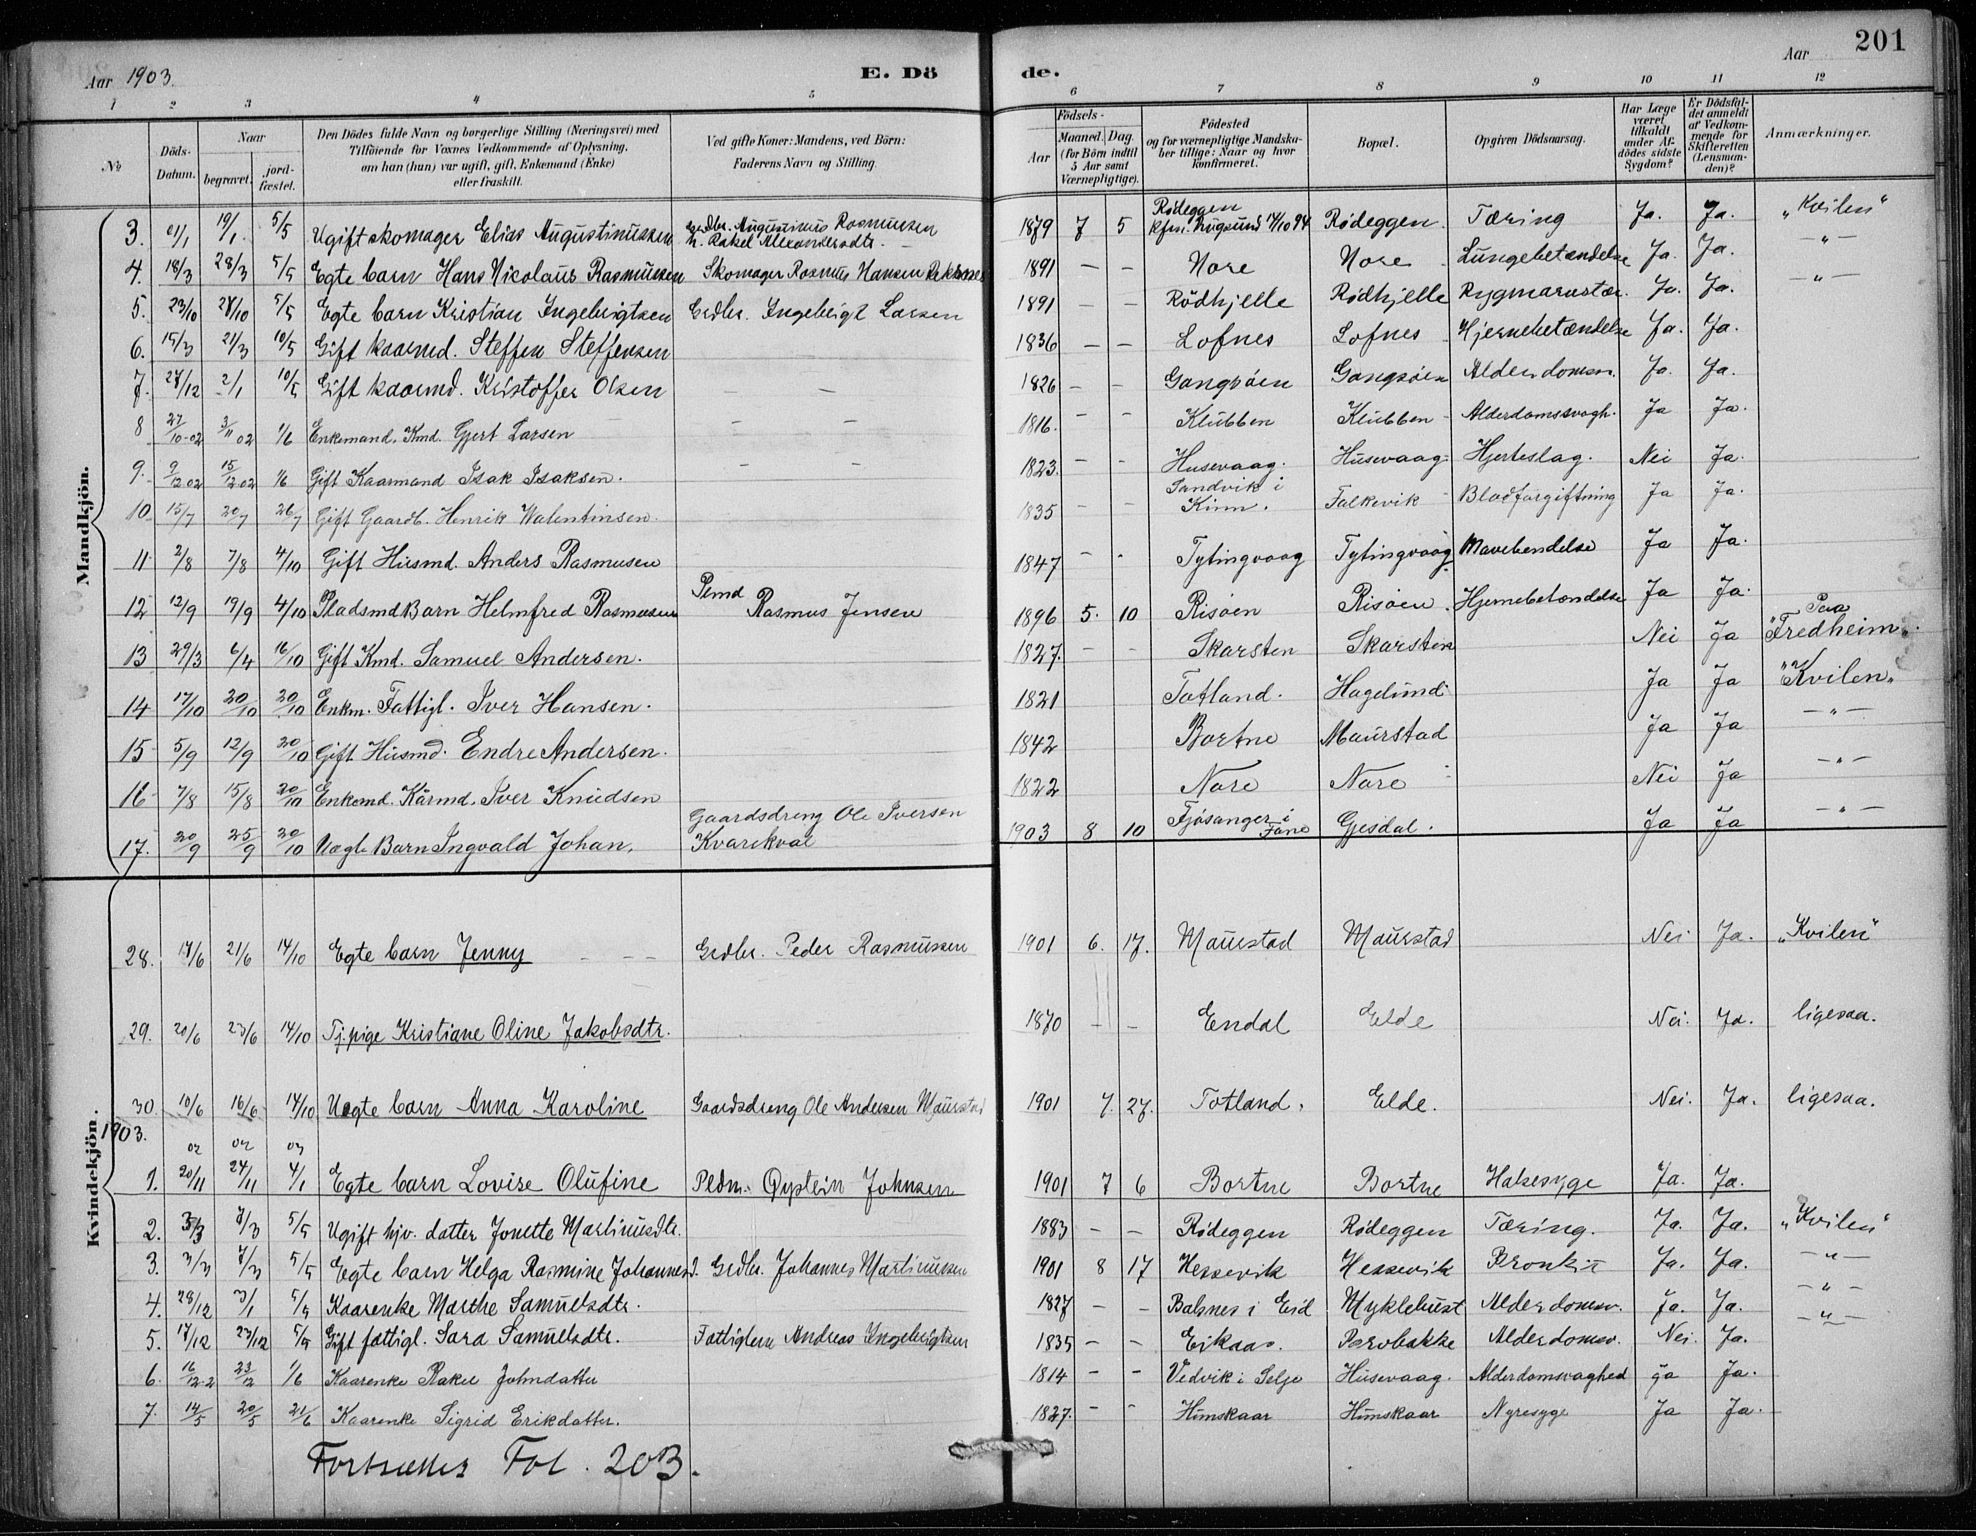 Aar 1903. E. Dö de. Aar 201
1 2 3 4 5 6 7 8 9 10 11 12
No Döds-Datum. Naar begravet. jord-fæstet. Den Dödes fulde Navn og borgerlige Stilling (Næringsvei) med Tilföiende for Voxnes Vedkommende af Oplysning, om han (hun) var ugift, gift, Enkemand (Enke) eller fraskilt. Ved gifte Koner: Mandens, ved Börn: Faderens Navn og Stilling. Födsels- Aar Maaned. Dag. (for Börn indtil 5 Aar samt Værnepligtige). Födested og for værnepligtige Mandskaber tillige: Naar og hvor konfirmeret. Bopæl. Opgiven Dödsaarsag. Har Læge været tilkaldt under Afdödes sidste Sygdom? Er Dödsfaldet anmeldt af Vedkommende for Skifteretten (Lensmanden)? Anmærkninger.
Mandkjön.
3. 01/1 19/1 5/5 Ugift skomager Elias Augustinussen Grdbr. Augustinus Rasmussen h. Rakel Alexandersdtr. 1879 7 5 Rødeggen Kfm. Rugsund 14/10 94 Rødeggen. Tæring Ja. Ja. "Kvilen"
4. 18/3 28/3 5/5 Egte barn Hans Nicolaus Rasmussen Skomager Rasmus Hansen 1891 – – Nore Nore Lungebetændelse Ja. Ja. – " –
5. 23/10 28/10 5/5 Egte barn Kristian Ingebrigtsen Grdbr. Ingebrigt Larsen 1891 – – Rödhjelle Rødhjelle Rygmarvstær. Ja. Ja. – " –
6. 15/3 21/3 10/5 Gift kaarmd. Steffen Steffensen 1836 – – Lofnes Lofnes Hjernebetændelse Ja. Ja.
7. 27/12 2/1 10/5 Gift kaarmd. Kristoffer Olsen – – 1826 – – Gangsöen Gangsöen Alderdomssv. Ja. Ja.
8 27/10-02 3/11 02 1/6 Enkemand. Kmd. Gjert Larsen – – 1816. – – Klubben Klubben Alderdomssvagh. Ja Ja.
9. 9/12 02 15/12 02 1/6 Gift Kaarmand Isak Isaksen. – – 1823. – – Husevaag. Husevaag. Hjerteslag. Nei Ja.
10. 15/7 20/7 26/7 Gift Gaardb. Henrik Walentinsen. 1835 – – Sandvik i Kinn. Falkevik Blodforgiftning Ja Ja.
11 2/8 7/8 4/10 Gift Husmd. Anders Rasmusen 1847 – - Tytingvaag Tytingvaag Mavebendelse Ja Ja.
12 12/9 19/9 4/10 Pladsmd Barn Helmfred Rasmusen Plmd Rasmus Jensen 1896 5. 10 Risöen Risöen. Hjernebetændelse Ja Ja.
13 29/3 6/4 16/10 Gift Kmd. Samuel Andersen. 1827. – – Skarsten Skarsten Nei Ja Paa "Fredheim".
14 17/10 20/10 20/10 Enkm. Fattigl. Iver Hansen. 1821 Totland. Hagelund Ja Ja "Kvilen"
15 5/9 12/9 20/10 Gift Husmd. Endre Andersen. 1842 Bortne Maurstad Ja Ja – " –
16 7/8 15/8 20/10 Enkemd. Kårmd. Iver Knudsen 1822 Nore Nore Nei Ja – " –
17. 20/9 25/9 20/10 Uægt Barn Ingvald Johan. Gaardsdreng Ole Iversen Kvarekval 1903 8 10 Fjösanger i Fane Gjesdal. Ja Ja – " –
Kvindekjön.
28. 17/6 21/6 14/10 Egte barn Jenny Grdbr. Peder Rasmussen 1901 6. 17. Maurstad Maurstad Nei Ja. "Kvilen"
29. 20/6 23/6 14/10 Tj. pige Kristiane Oline Jakobsdtr. 1870 – – Endal Elde Nei. Ja. ligesaa.
30. 10/6 16/6 14/10 Uegte barn Anna Karoline Gaardsdreng Ole Andersen Maurstad 1901 7. 27. Totland. Elde. Nei. Ja. ligesaa.
1903.
1. 20/11 02 24/11 02 4/1 03 Egte barn Lovise Olufine Pldm. Øystein Johnsen 1901 7 6 Bortne Bortne Halsesyge Ja. Ja.
2. 3/3 7/3 5/5 Ugift hjv. datter Jonette Martinusdtr. 1883 – – Rødeggen Rødeggen Tæring. Ja. Ja. "Kvilen"
3. 3/3 7/3 5/5 Egte barn Helga Rasmine Johannesd. Grdbr. Johannes Martinussen 1901 8 17 Hessevik Hessevik Bronkit Ja. Ja. – " –
4. 28/12 3/1 5/5 Kaarenke Marthe Samuelsdtr. 1827 – – Balsnes i Eid Myklebust Alderdomsv. Ja. Ja. – " –
5. 17/12 23/12 5/5 Gift fattigl. Sara Samuelsdtr. Fattiglem Andreas Ingebrigtsen 1835 – – Eikaas. Alderdomsv. Nei. Ja. – " –
6. 16/12-2 23/12 1/6 Kaarenke Rakel Johndatter 1814 – – Vedvik i Selje Husevaag. Alderdomsvaghed Ja Ja.
7. 14/5 20/5 21/6 Kaarenke Sigrid Erikdatter. 1827. – – Humskaar Humskaar Nyresyge Ja Ja.
Fortsættes Fol. 203.